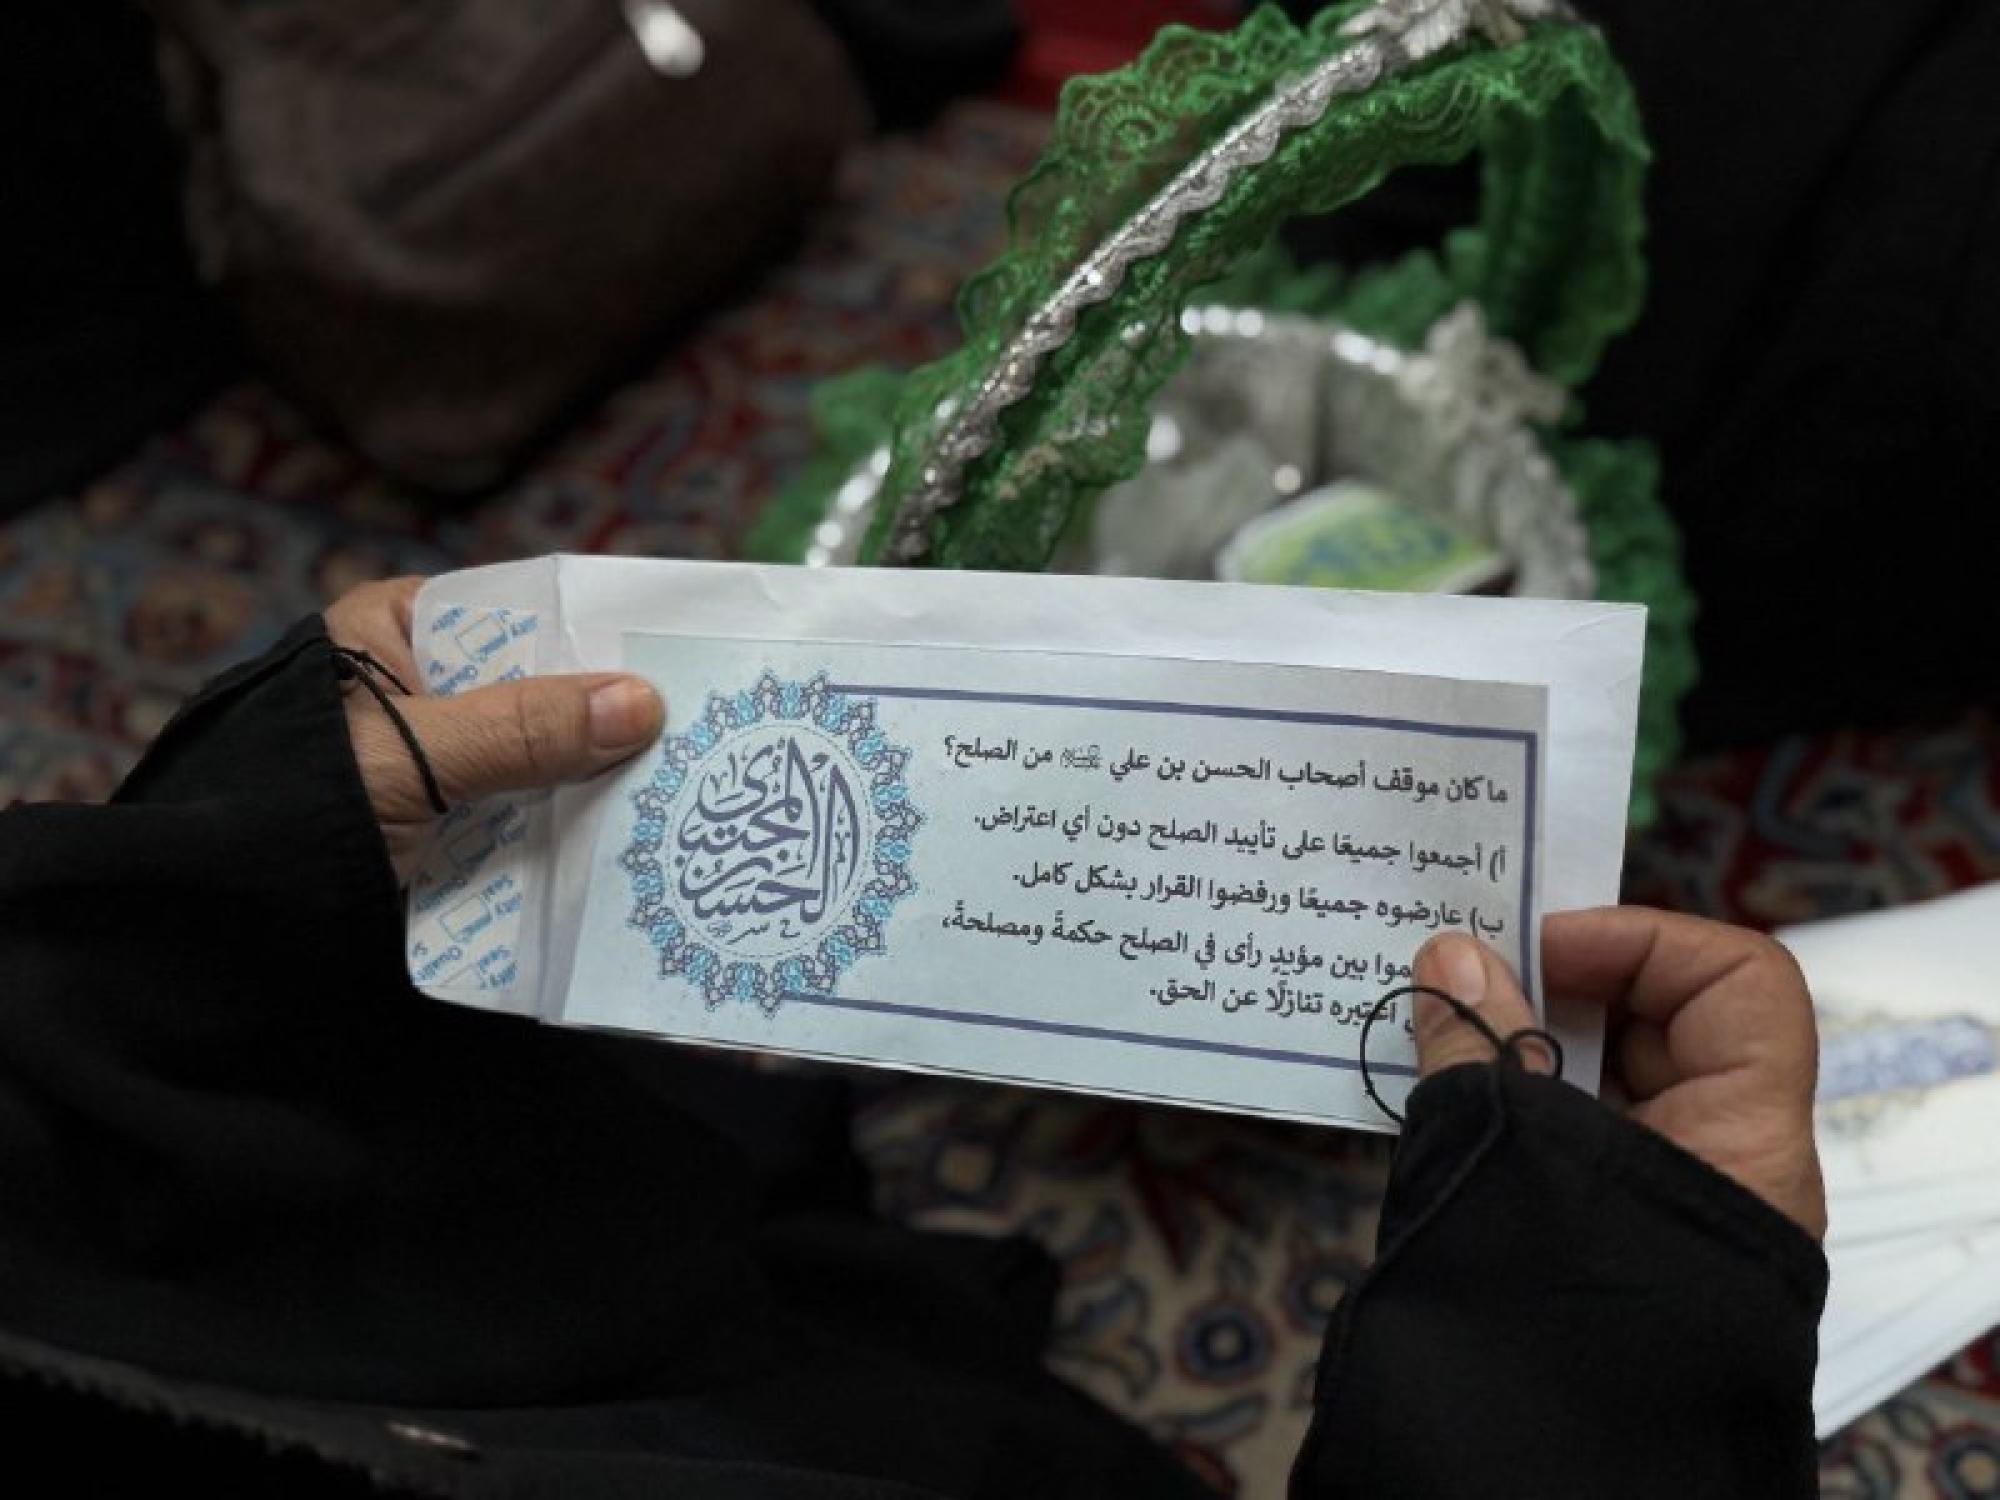 ما كان موقف أصحاب الحسن بن علي من الصلح؟
أ) أجمعوا جميعًا على تأييد الصلح دون أي اعتراض.
ب) عارضوه جميعًا ورفضوا القرار بشكل كامل.
بين مؤيدٍ رأى في الصلح حكمةً ومصلحةً،
اعتبره تنازلًا عن الحق.
الحسن المجتبى